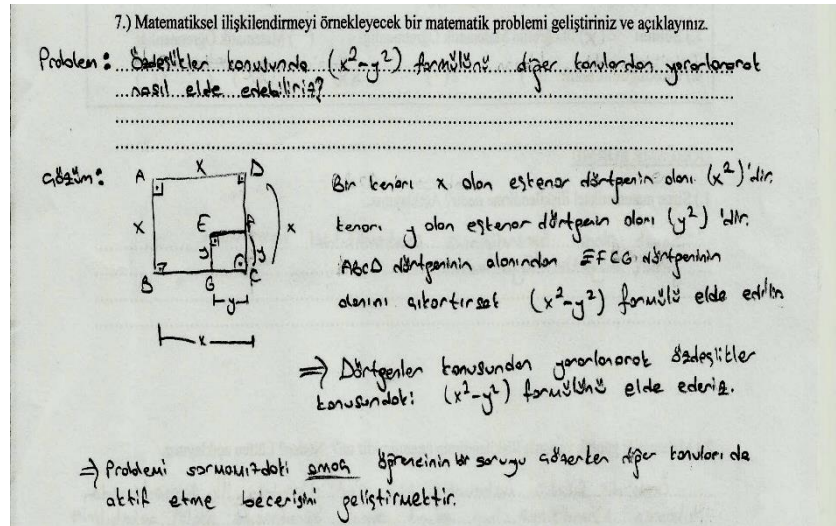 7.) Matematiksel ilişkilendirmeyi örnekleyecek bir matematik problemi geliştiriniz ve açıklayınız.
Problem: Özdeşlikler konusunda (x²-y²) formülünü diğer konulardan yararlanarak
nasıl elde edebiliriz?
Çözüm:
A x D
x E F x
y y
B G C
y
x
Bir kenarı x olan eşkenar dörtgenin alanı (x²)'dir.
kenarı y olan eşkenar dörtgenin alanı (y²) 'dir.
ABCD dörtgeninin alanından EFCG dörtgeninin
alanını çıkartırsak (x²-y²) formülü elde edilir
⇒ Dörtgenler konusundan yararlanarak özdeşlikler
konusundaki (x²-y²) formülünü elde ederiz.
⇒ Problemi sormamızdaki amaç öğrencinin bir soruyu çözerken diğer konuları da
aktif etme becerisini geliştirmektir.